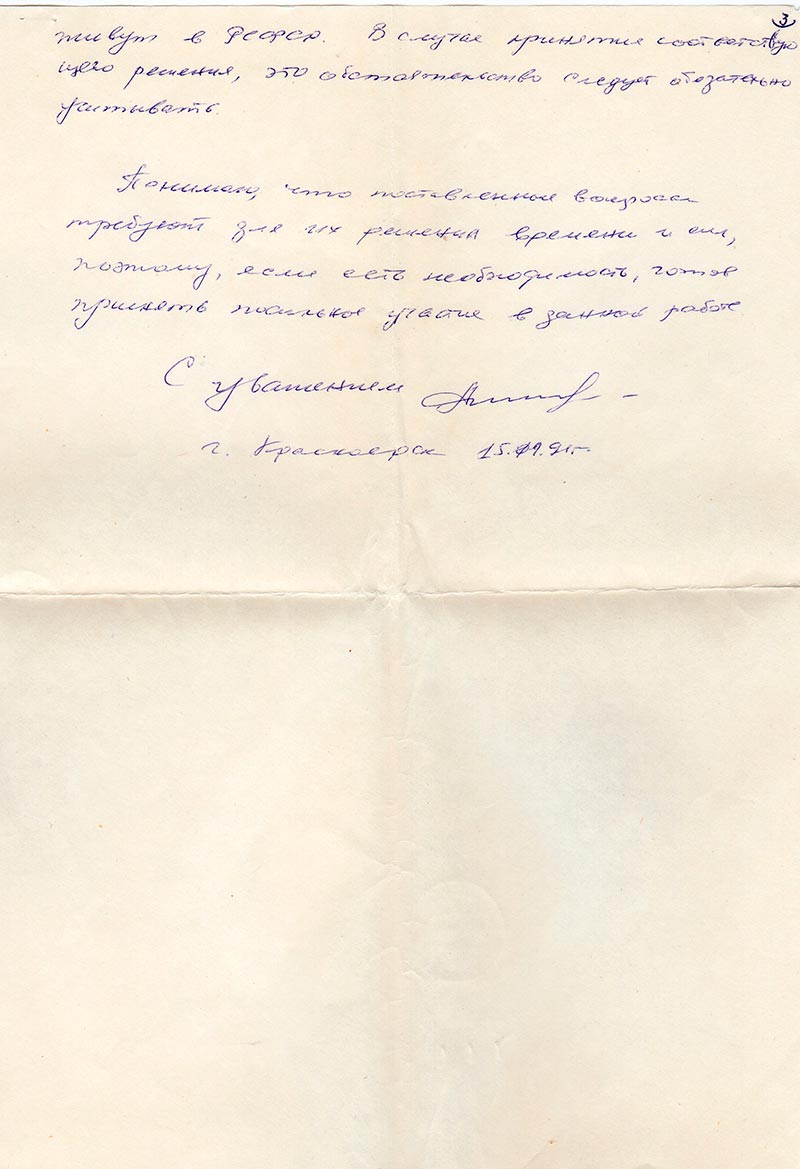 3
живут в РСФСР. В случае принятия соответствую
щего решения, это обстоятельство следует обязательно
учитывать.
Понимаю, что поставленные вопросы
требуют для их решения времени и сил,
поэтому, если есть необходимость, готов
принять посильное участие в данной работе.
С уважением
г. Красноярск 15.01.91г.